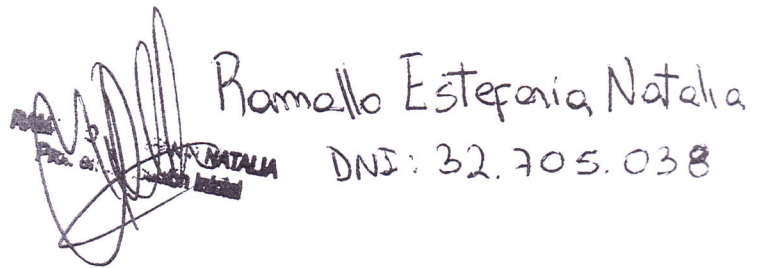 Ramallo Estefania Natalia
DNI: 32.705.038
NATALIA
Inicial